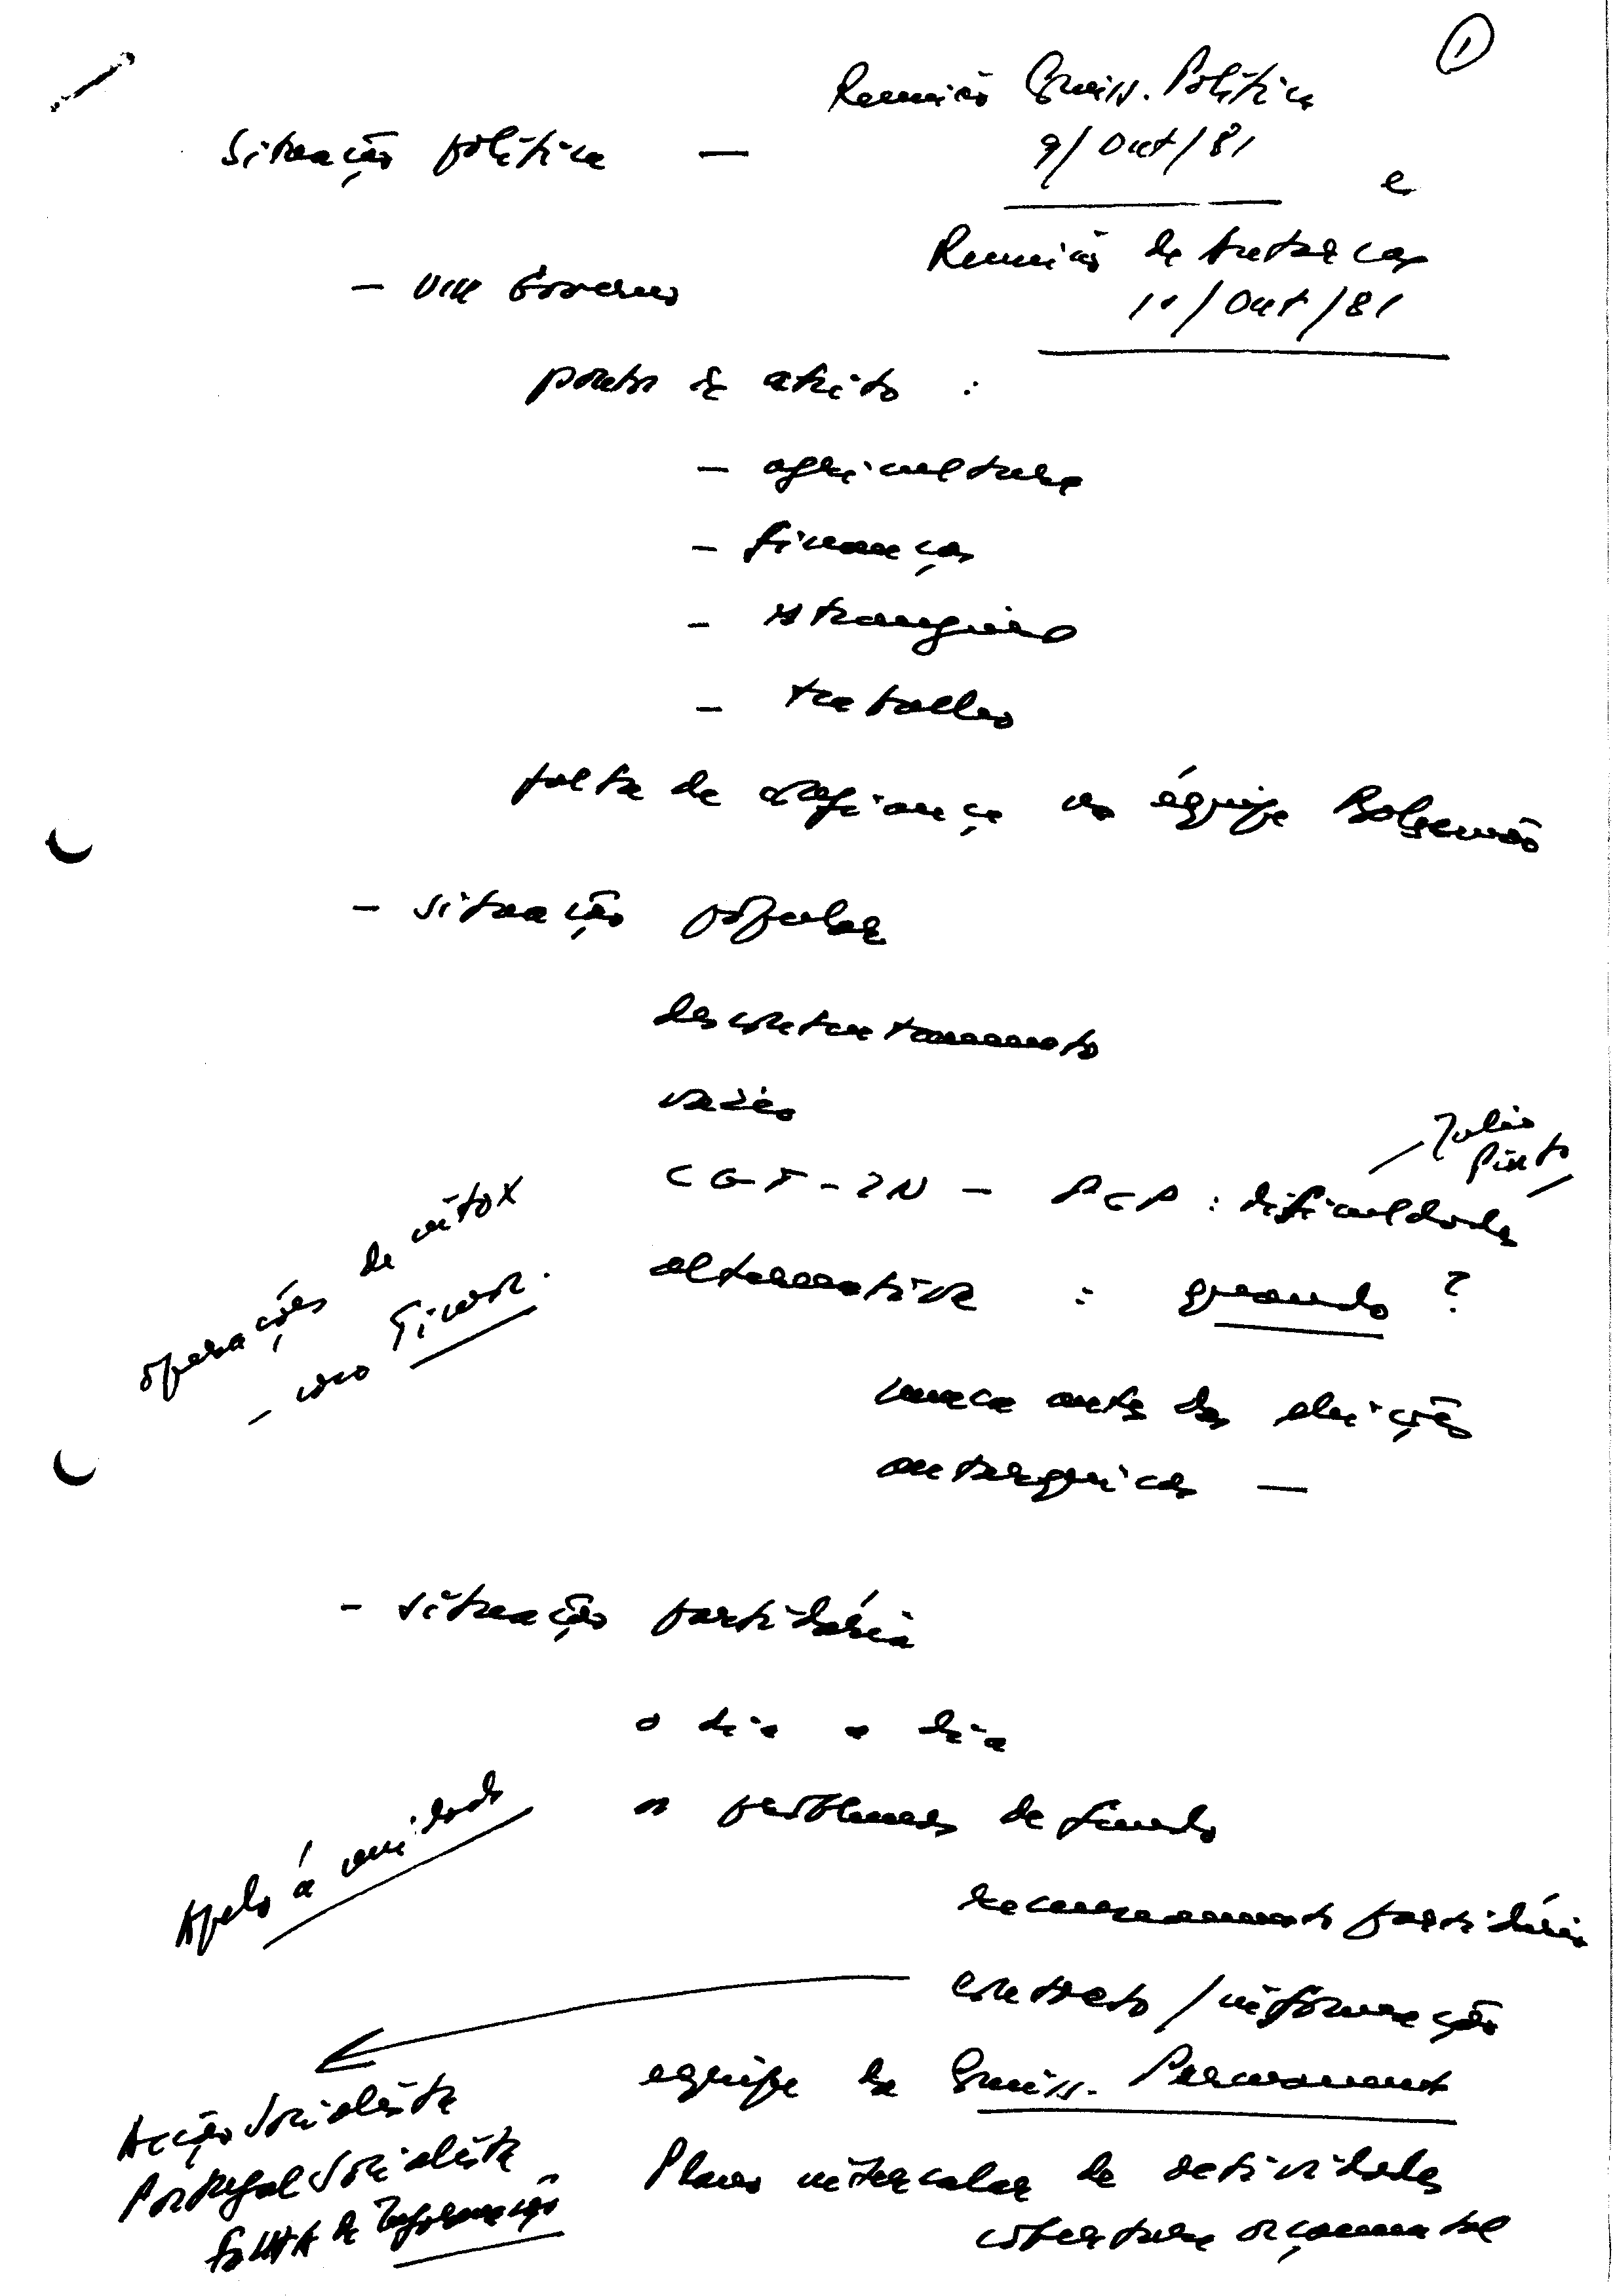 1
Reunião Comiss. Política
9/Out/81 e
Reunião de Autarcas
10/Out/81
Situação política —
- VIII Governo
pontos de atrito :
- agricultura
- finanças
- estrangeiros
- trabalho
falta de confiança na équipe Balsemão
- situação popular
descontentamento
vazio
CGT-IN - PCP : dificuldades
Julio Pinto
alternativa : quando ?
nunca antes das eleições
autárquicas —
operações de intox
- caso
- situação partidária
o dia a dia
os problemas de fundo
Apelo à unidade
partidário
contacto / informação
equipe da Comiss. Permanente
Plano intercalar de actividades
cobertura orçamental
Acção Socialista
Portugal Socialista
Folha de Informação